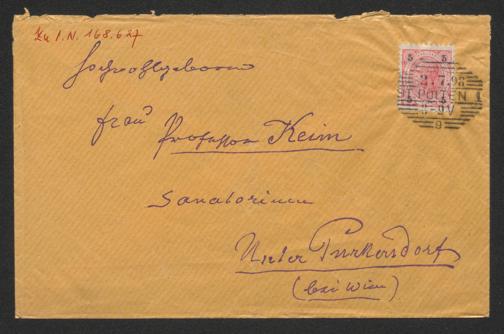 Zu I.N. 168.627
Hochwohlgeboren
Frau Professor Keim
Sanatorium
Unter Purkersdorf
(bei Wien)
5 5
2.7.98
ST. PÖLTEN 1
8-9V
9